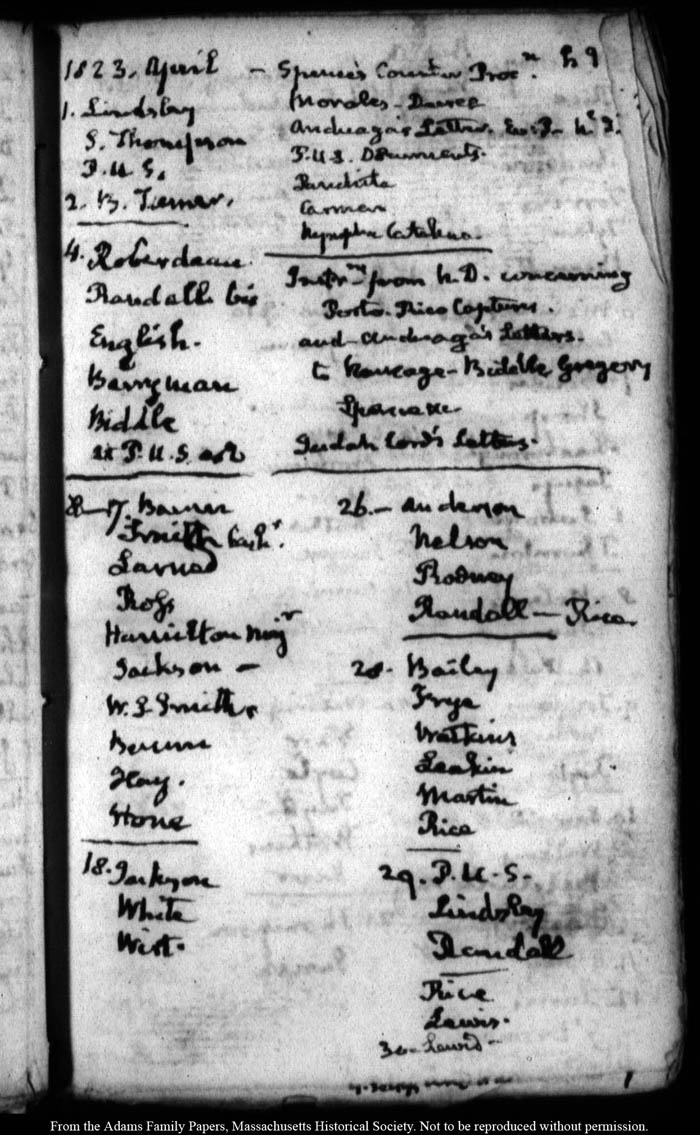 1823. April —
1. Lindsley
S. Thompson
P. U. S.
2. B. Turner.
4. Roberdeau.
Randall bis
English.
Berryman
Biddle
at P. U. S.
17.
Smith Cash.r
Larned
Ross
Hamilton
Jackson —
W. S. Smith.
Hay.
Stone
18. Jackson
White
Wirt.
Spence's Counter Proc.n
Morales —
Anduaga's Letter.
P.U.S. Documents.
Panchita
Carmen
Nympha Catalina.
Instr.ns from N.D. concerning
Porto-Rico Captures.
and Anduaga's Letters.
to Biddle Gregory
Spence
Judah Lord's Letters.
26. — Anderson
Nelson
Rodney
Randall — Rice.
28. Bailey
Frye
Watkins
Leakin
Martin
Rice
29. P. U. S.
Lindsley
Randall
Rice
Lewis.
30
From the Adams Family Papers, Massachusetts Historical Society. Not to be reproduced without permission.